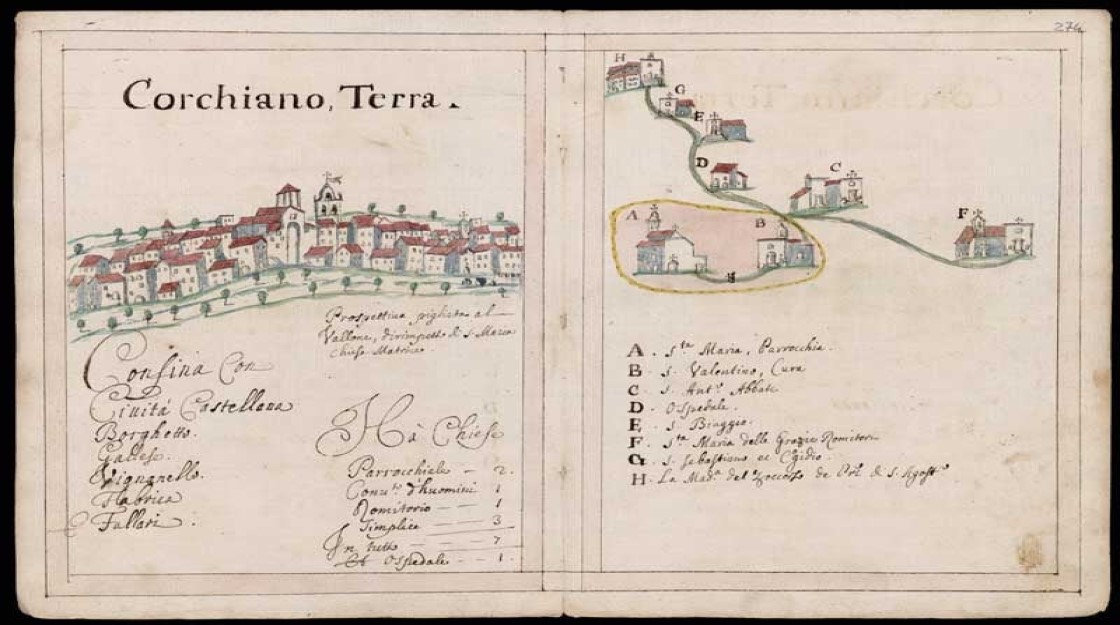 Corchiano, Terra.
Prospettiva pigliata al
Vallone, dirimpetto di S. Maria
Chiesa Matrice
Confina Con
Civitá Castellana
Borghetto.
Gallese.
Vignanello.
Fabrica
Fallari.
Hà Chiese
Parrocchiale – 2.
Conv.to d'huomini 1
Romitorio – – 1
Simplice – – 3
In tutto – – 7
Et Ospedale – 1.
274
H
G
E
D
C
A
B
F
A. S.ta Maria, Parrocchia.
B. S. Valentino, Cura
C. S. Ant.o Abbate
D. Ospedale.
E. S. Biaggio.
F. S.ta Maria delle Grazie Romitori
G. S. Sebastiano et Egidio.
H. La Mad.a del Soccorso de di S. Agost.o